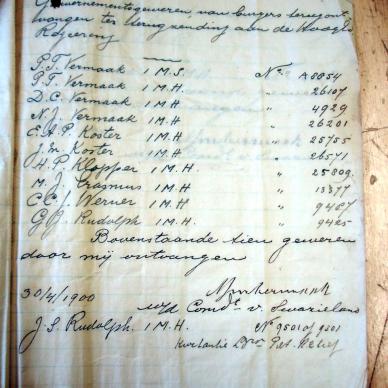 Gouvernementsgeweren van burgers terugont
vangen ter terugzending aan de HoogEd
Regeering
P.J. Vermaak 1 M.S. No A8054
P.J. Vermaak 1 M.H. " 26107
D.C. Vermaak 1 M.H " 4929
N.J. Vermaak 1 M.H " 26201
C.A.P. Koster 1 M.H " 25755
J.M. Koster 1 M.H " 26571
H.P. Klopper 1 M.H. " 25809
M.J. Erasmus 1 M.H " 13377
C.C.J. Werner 1 M.H " 9487
G.J. Rudolph 1 M.H " 9425
Bovenstaande tien geweren
door mij ontvangen
30/4/1900
w/d Comdt v. Swazieland
J.S. Rudolph. 1 M.H. No 9501 of 9201
Piet Relief